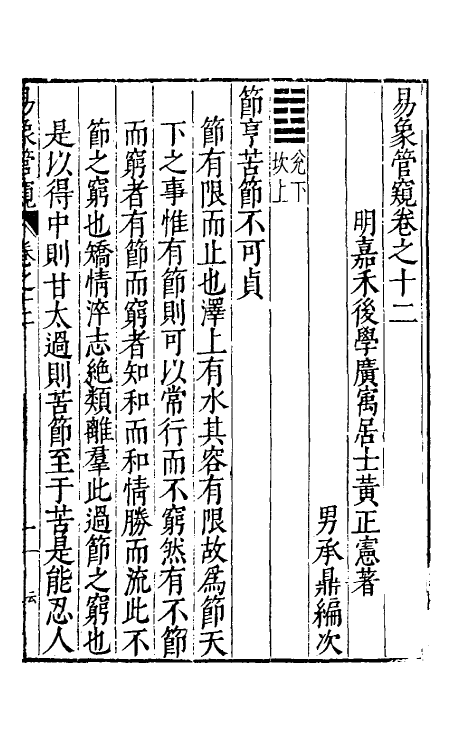 易象管窺卷之十二
明嘉禾後學廣寓居士黃正憲著
男承鼎編次
兌下
坎上
節亨苦節不可貞
節有限而止也澤上有水其容有限故爲節天
下之事惟有節則可以常行而不窮然有不節
而窮者有節而窮者知和而和情勝而流此不
節之窮也矯情淬志絶類離羣此過節之窮也
是以得中則甘太過則苦節至于苦是能忍人
易象管窺 卷之十二